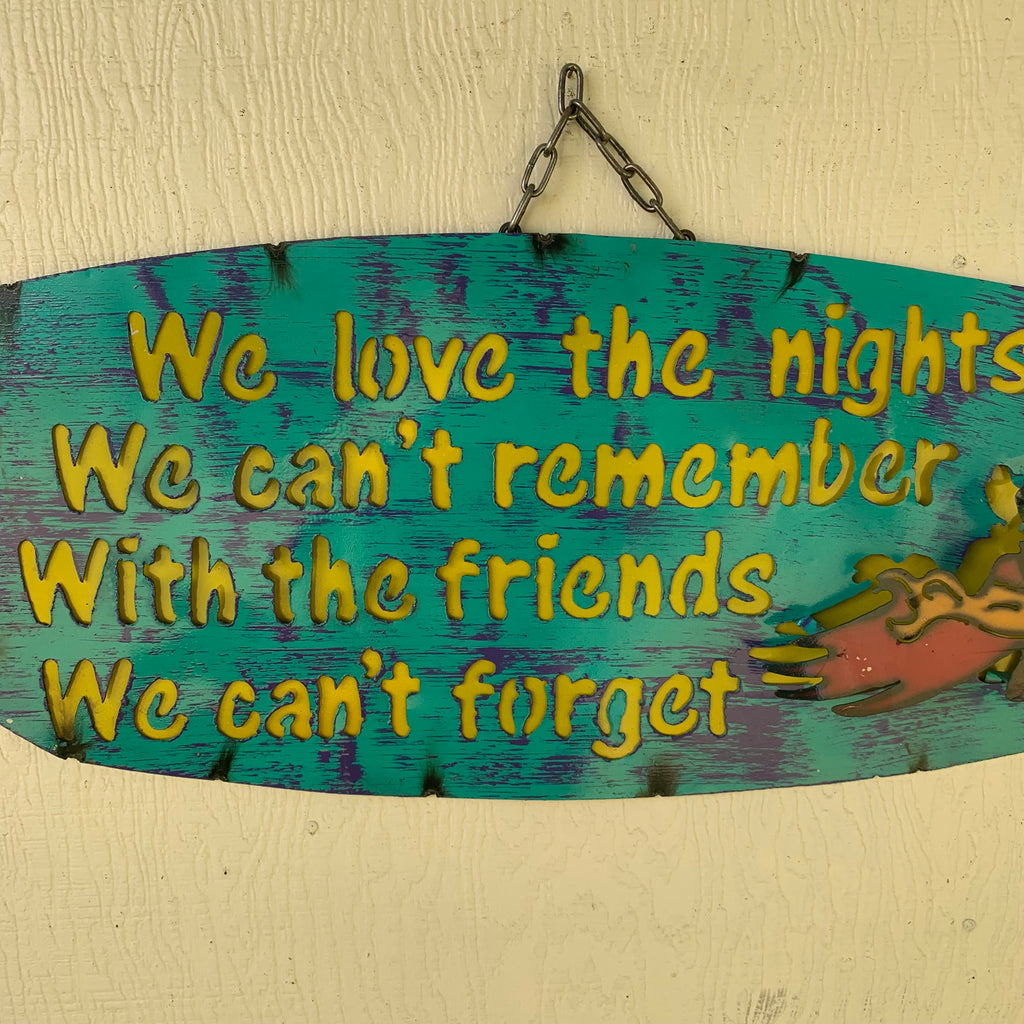 We love the nights
We can't remember
With the friends
We can't forget